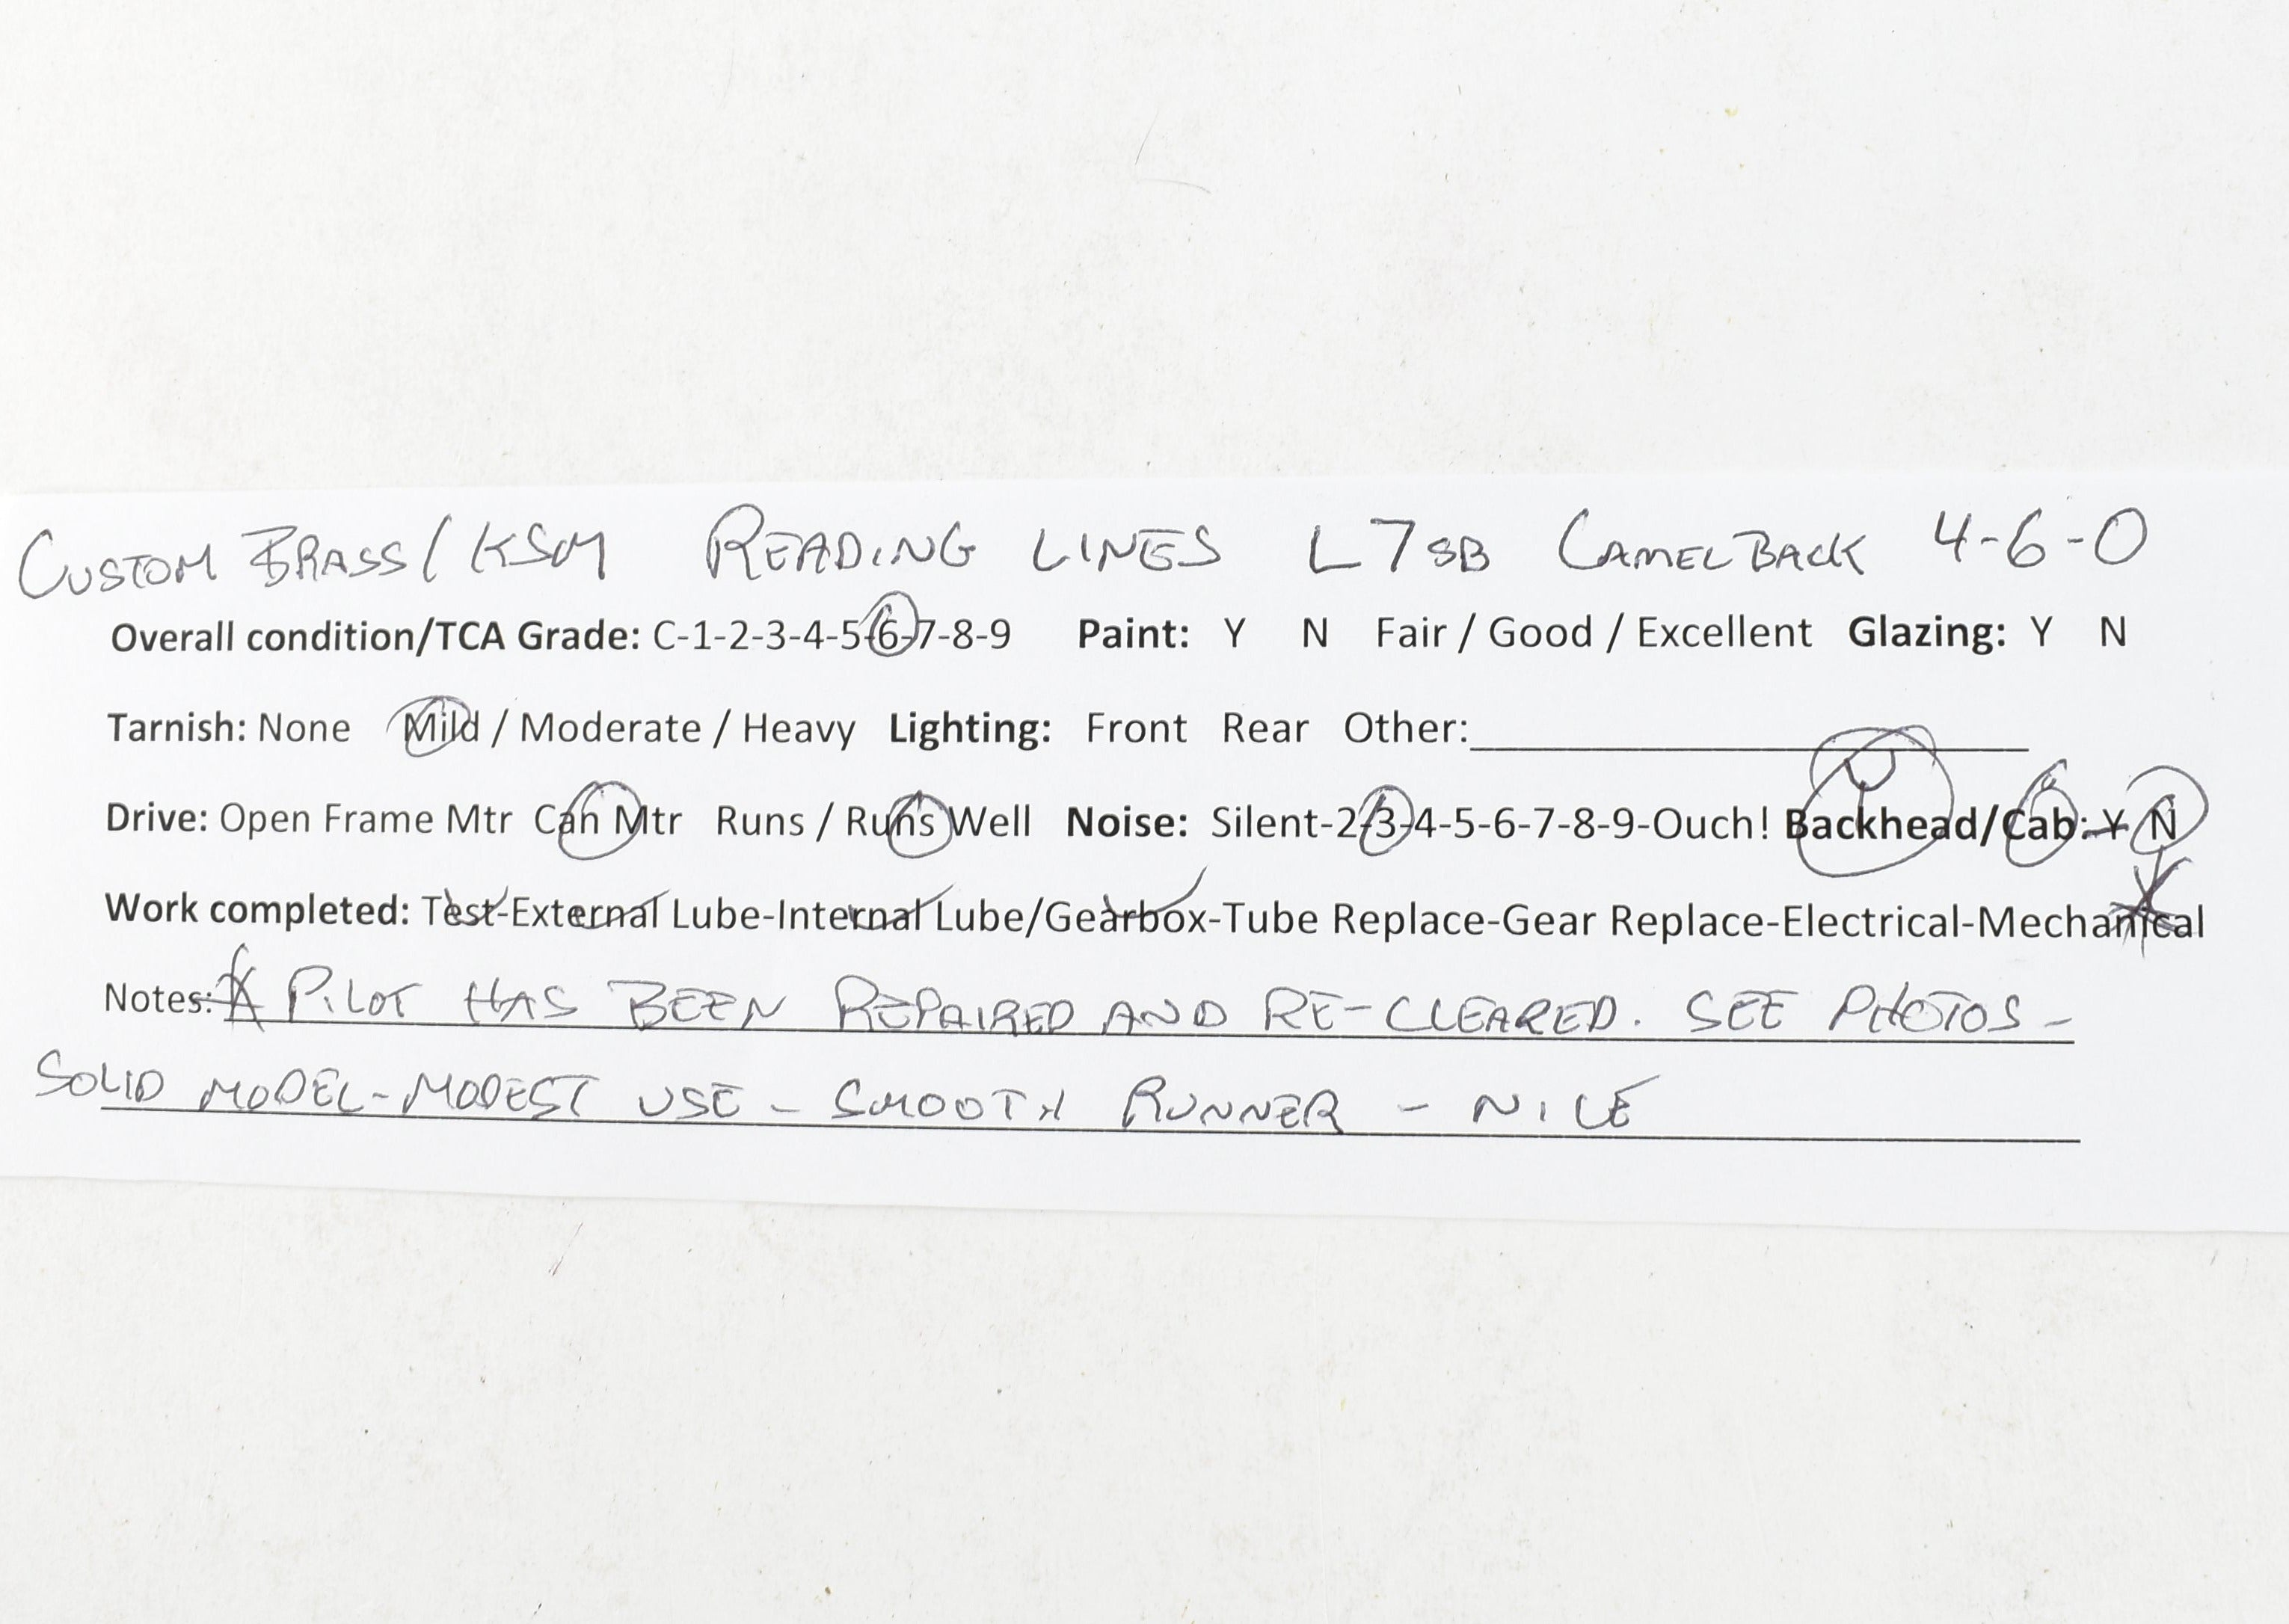 CUSTOM BRASS/KSM READING LINES L7SB CAMELBACK 4-6-0
Overall condition/TCA Grade: C-1-2-3-4-5-6-7-8-9 Paint: Y N Fair / Good / Excellent Glazing: Y N
Tarnish: None Mild / Moderate / Heavy Lighting: Front Rear Other:
Drive: Open Frame Mtr Can Mtr Runs / Runs Well Noise: Silent-2-3-4-5-6-7-8-9-Ouch! Backhead/Cab: Y N
Work completed: Test-External Lube-Internal Lube/Gearbox-Tube Replace-Gear Replace-Electrical-Mechanical
Notes: PILOT HAS BEEN REPAIRED AND RE-CLEARED. SEE PHOTOS -
SOLID MODEL-MODEST USE - SMOOTH RUNNER - NICE